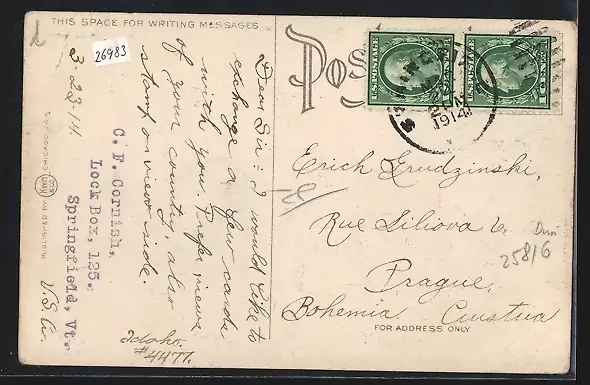 THIS SPACE FOR WRITING MESSAGES
26983
3-23-14
Dear Sir: I would like to
exchange a few cards
with you. Prefer views
of your country, also
stamp on view side.
C. F. Cornish,
Lock Box, 125.
Springfield, Vt.
U.S.A.
Idaho.
#4477.
U.S. POSTAGE
U.S. POSTAGE
1 CENT
1914
Erich Grudzinski,
Rue Liliova 6,
Prague,
Bohemia Austria
25816
FOR ADDRESS ONLY